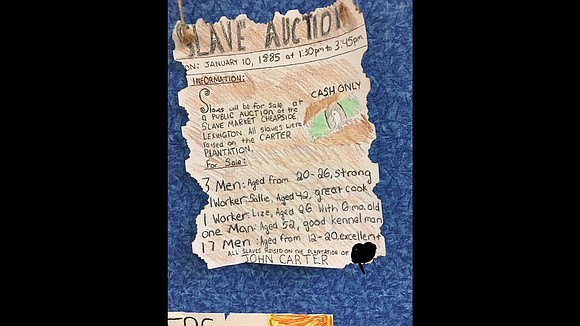 SLAVE AUCTION
ON: JANUARY 10, 1885 at 1:30pm to 3:45pm
INFORMATION:
CASH ONLY
Slaves will be for sale at
a PUBLIC AUCTION at the
SLAVE MARKET CHEAPSIDE
LEXINGTON. All slaves were
raised on the CARTER
PLANTATION.
For Sale:
3 Men: Aged from 20-26, strong
1 Worker: Sallie, Aged 42, great cook
1 Worker: Lize, Aged 26 With 6 mo. old
one Man: Aged 52, good kennel man
17 Men: Aged from 12-20, excellent
ALL SLAVES RAISED ON THE PLANTATION OF
JOHN CARTER